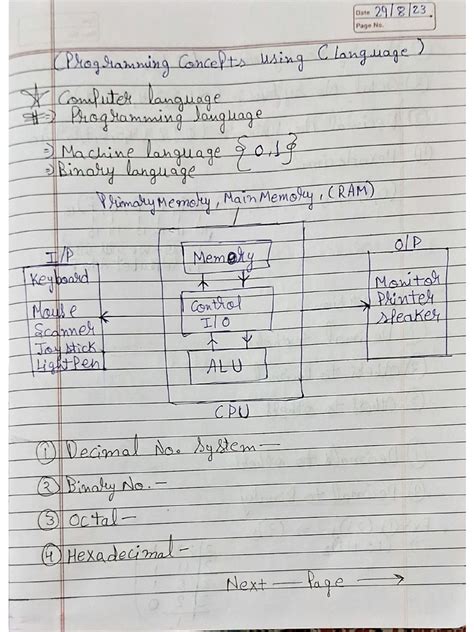 Date 29/8/23
Page No.
(Programming Concepts using C language)
Computer language
#=> Programming language
=> Machine language {0,1}
=> Binary language
Primary Memory, Main Memory, (RAM)
I/P
O/P
Keyboard
Mouse
Scanner
Joystick
LightPen
Memory
Control
I/O
ALU
CPU
Monitor
Printer
Speaker
① Decimal No. System —
② Binary No. —
③ Octal —
④ Hexadecimal —
Next — Page →